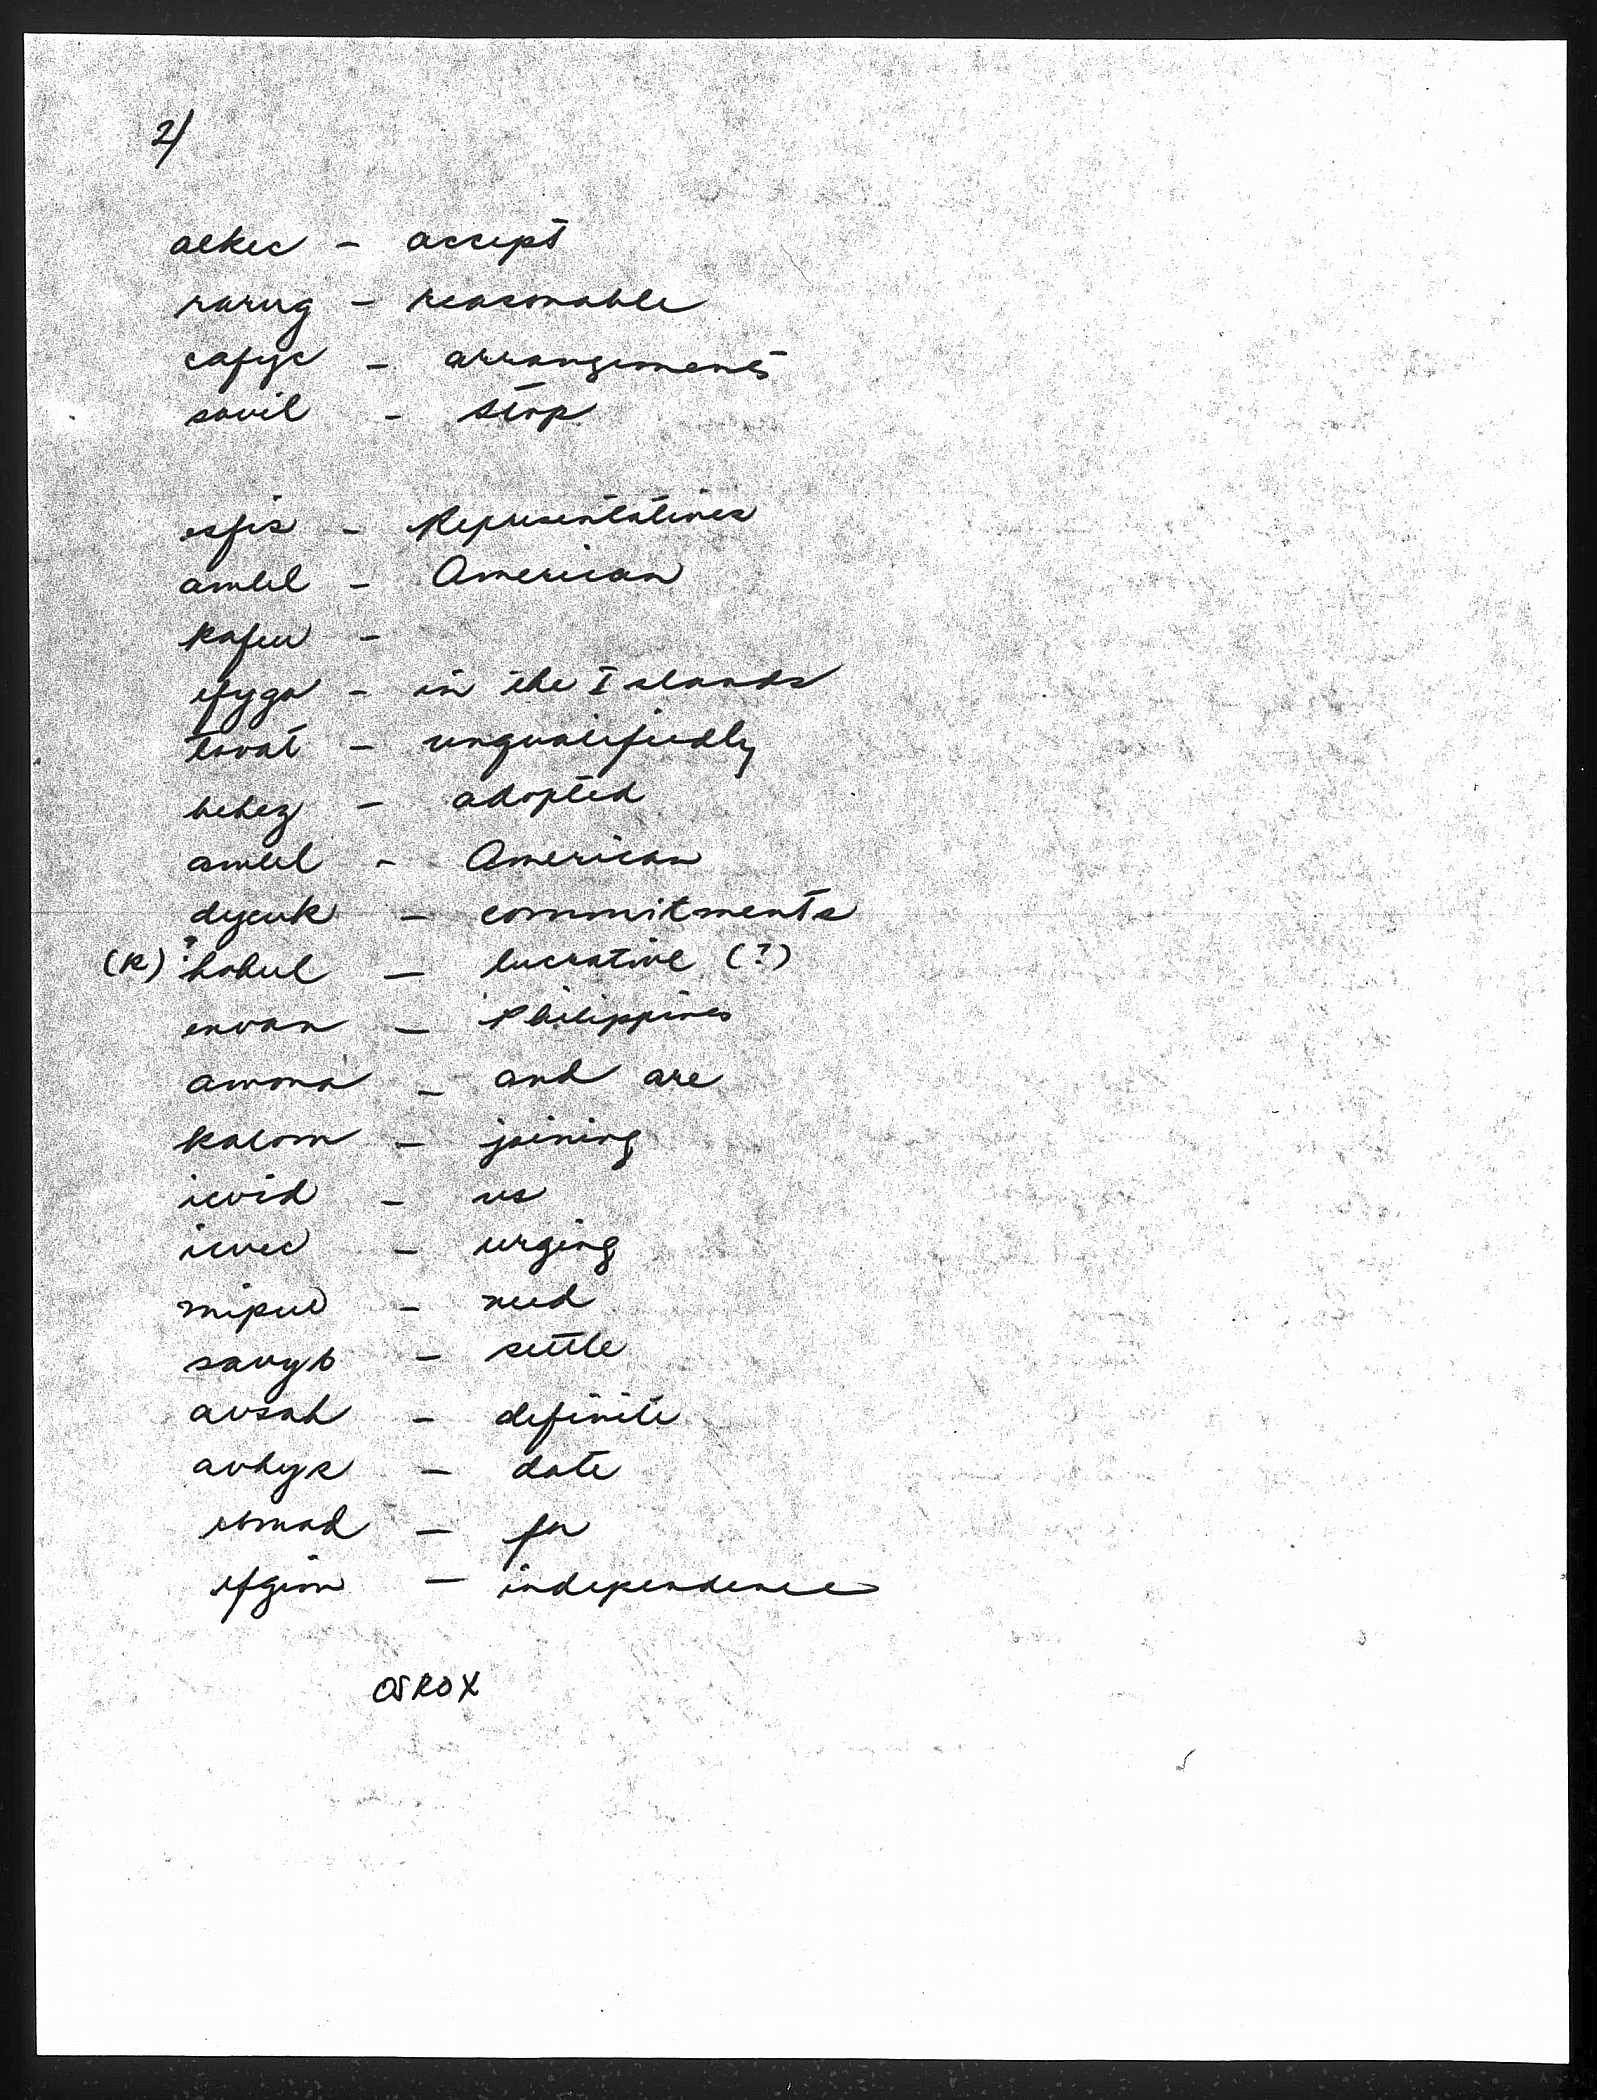 2/
aekec - accept
rarug - reasonable
cafyc - arrangements
sovil - stop
esfis - Representatives
ambel - American
kafuu -
efygo - in the Islands
tovat - unqualifiedly
behez - adopted
ambel - American
dycuk - commitments
(k) ? hobul - lucrative (?)
envan - Philippines
amona - and are
kalom - joining
icvid - us
icvec - urging
mipud - need
savyb - settle
avsah - definite
avhys - date
ebmad - for
efgim - independence
OSROX